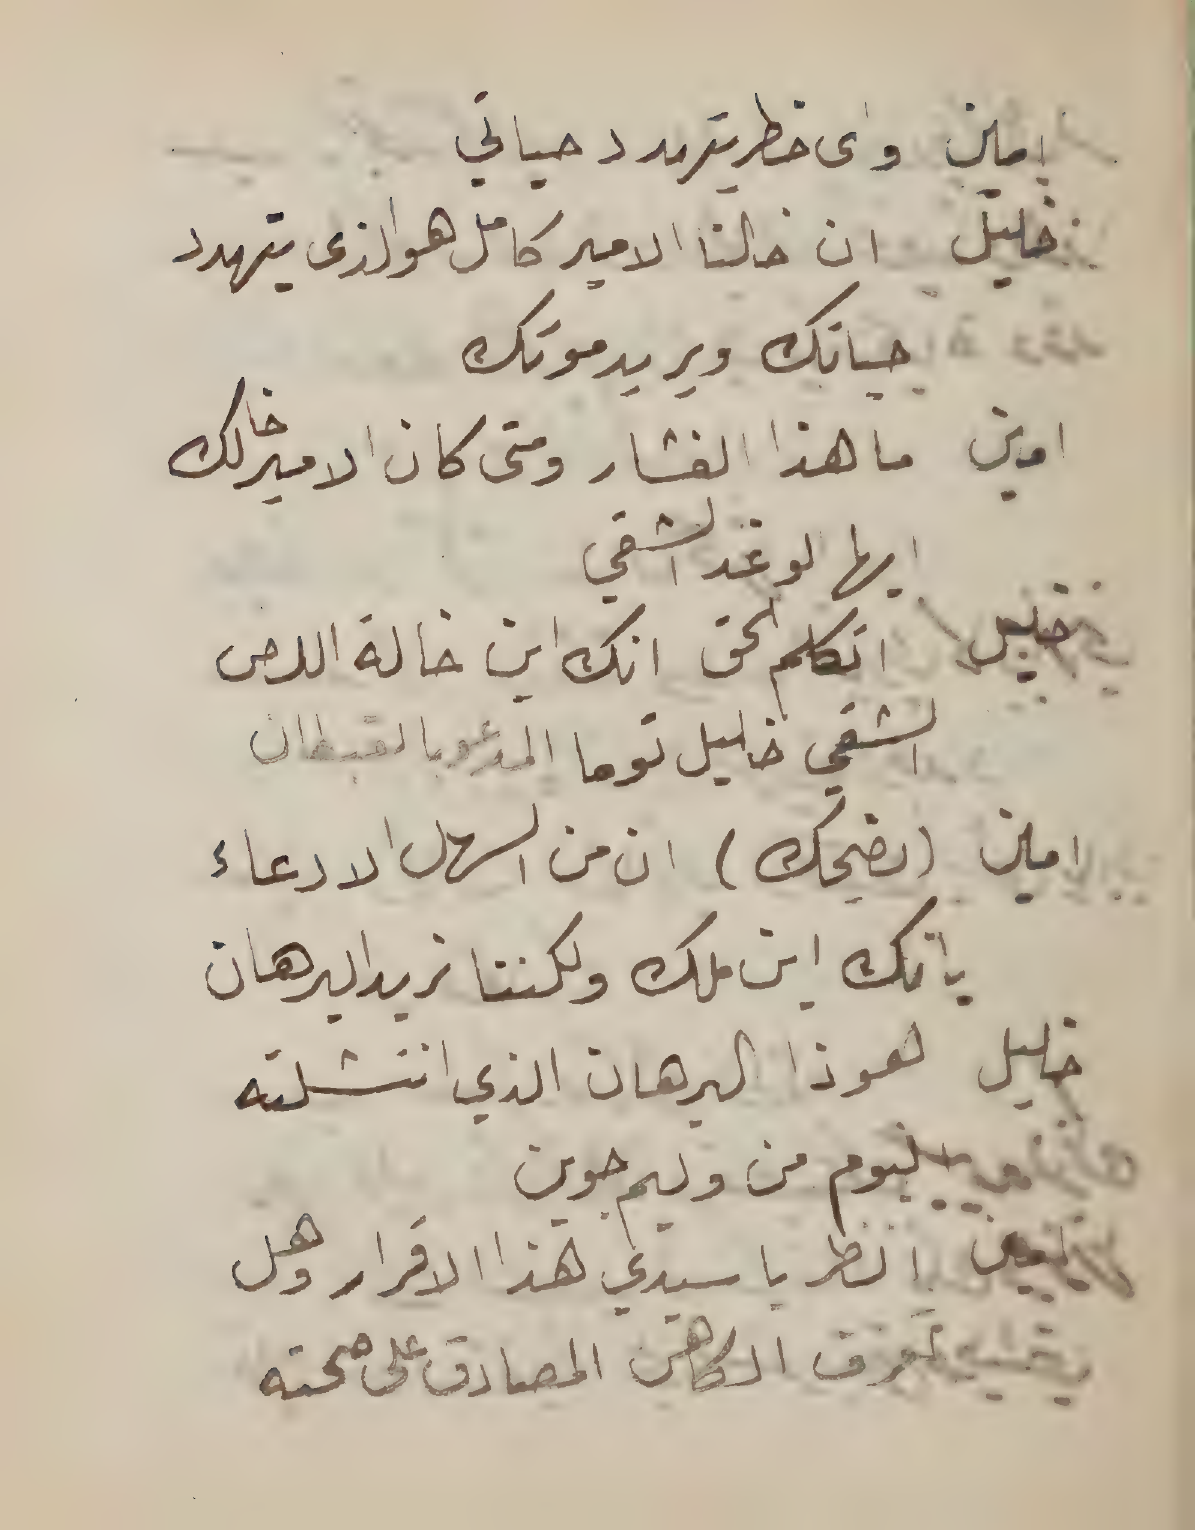 امين وای خطر يتهدد حياتي
خليل ان خالنا الامير كامل هو الذی يتهدد
حياتك ويريد موتك
امين ما هذا الفشار ومتی كان الامير خالك
ايها الوغد الشقي
خليل اتكلم الحق انك ابن خالة اللص
الشقي خليل توما المدعو بالقبطان
امين (يضحك) ان من السهل الادعاء
بانك ابن ملك ولكننا نريد البرهان
خليل هوذا البرهان الذي انتشلته
اليوم من وليم جوين
انظر يا سيدي هذا الاقرار وهل
تعرف الكاهن المصادق علی صحته